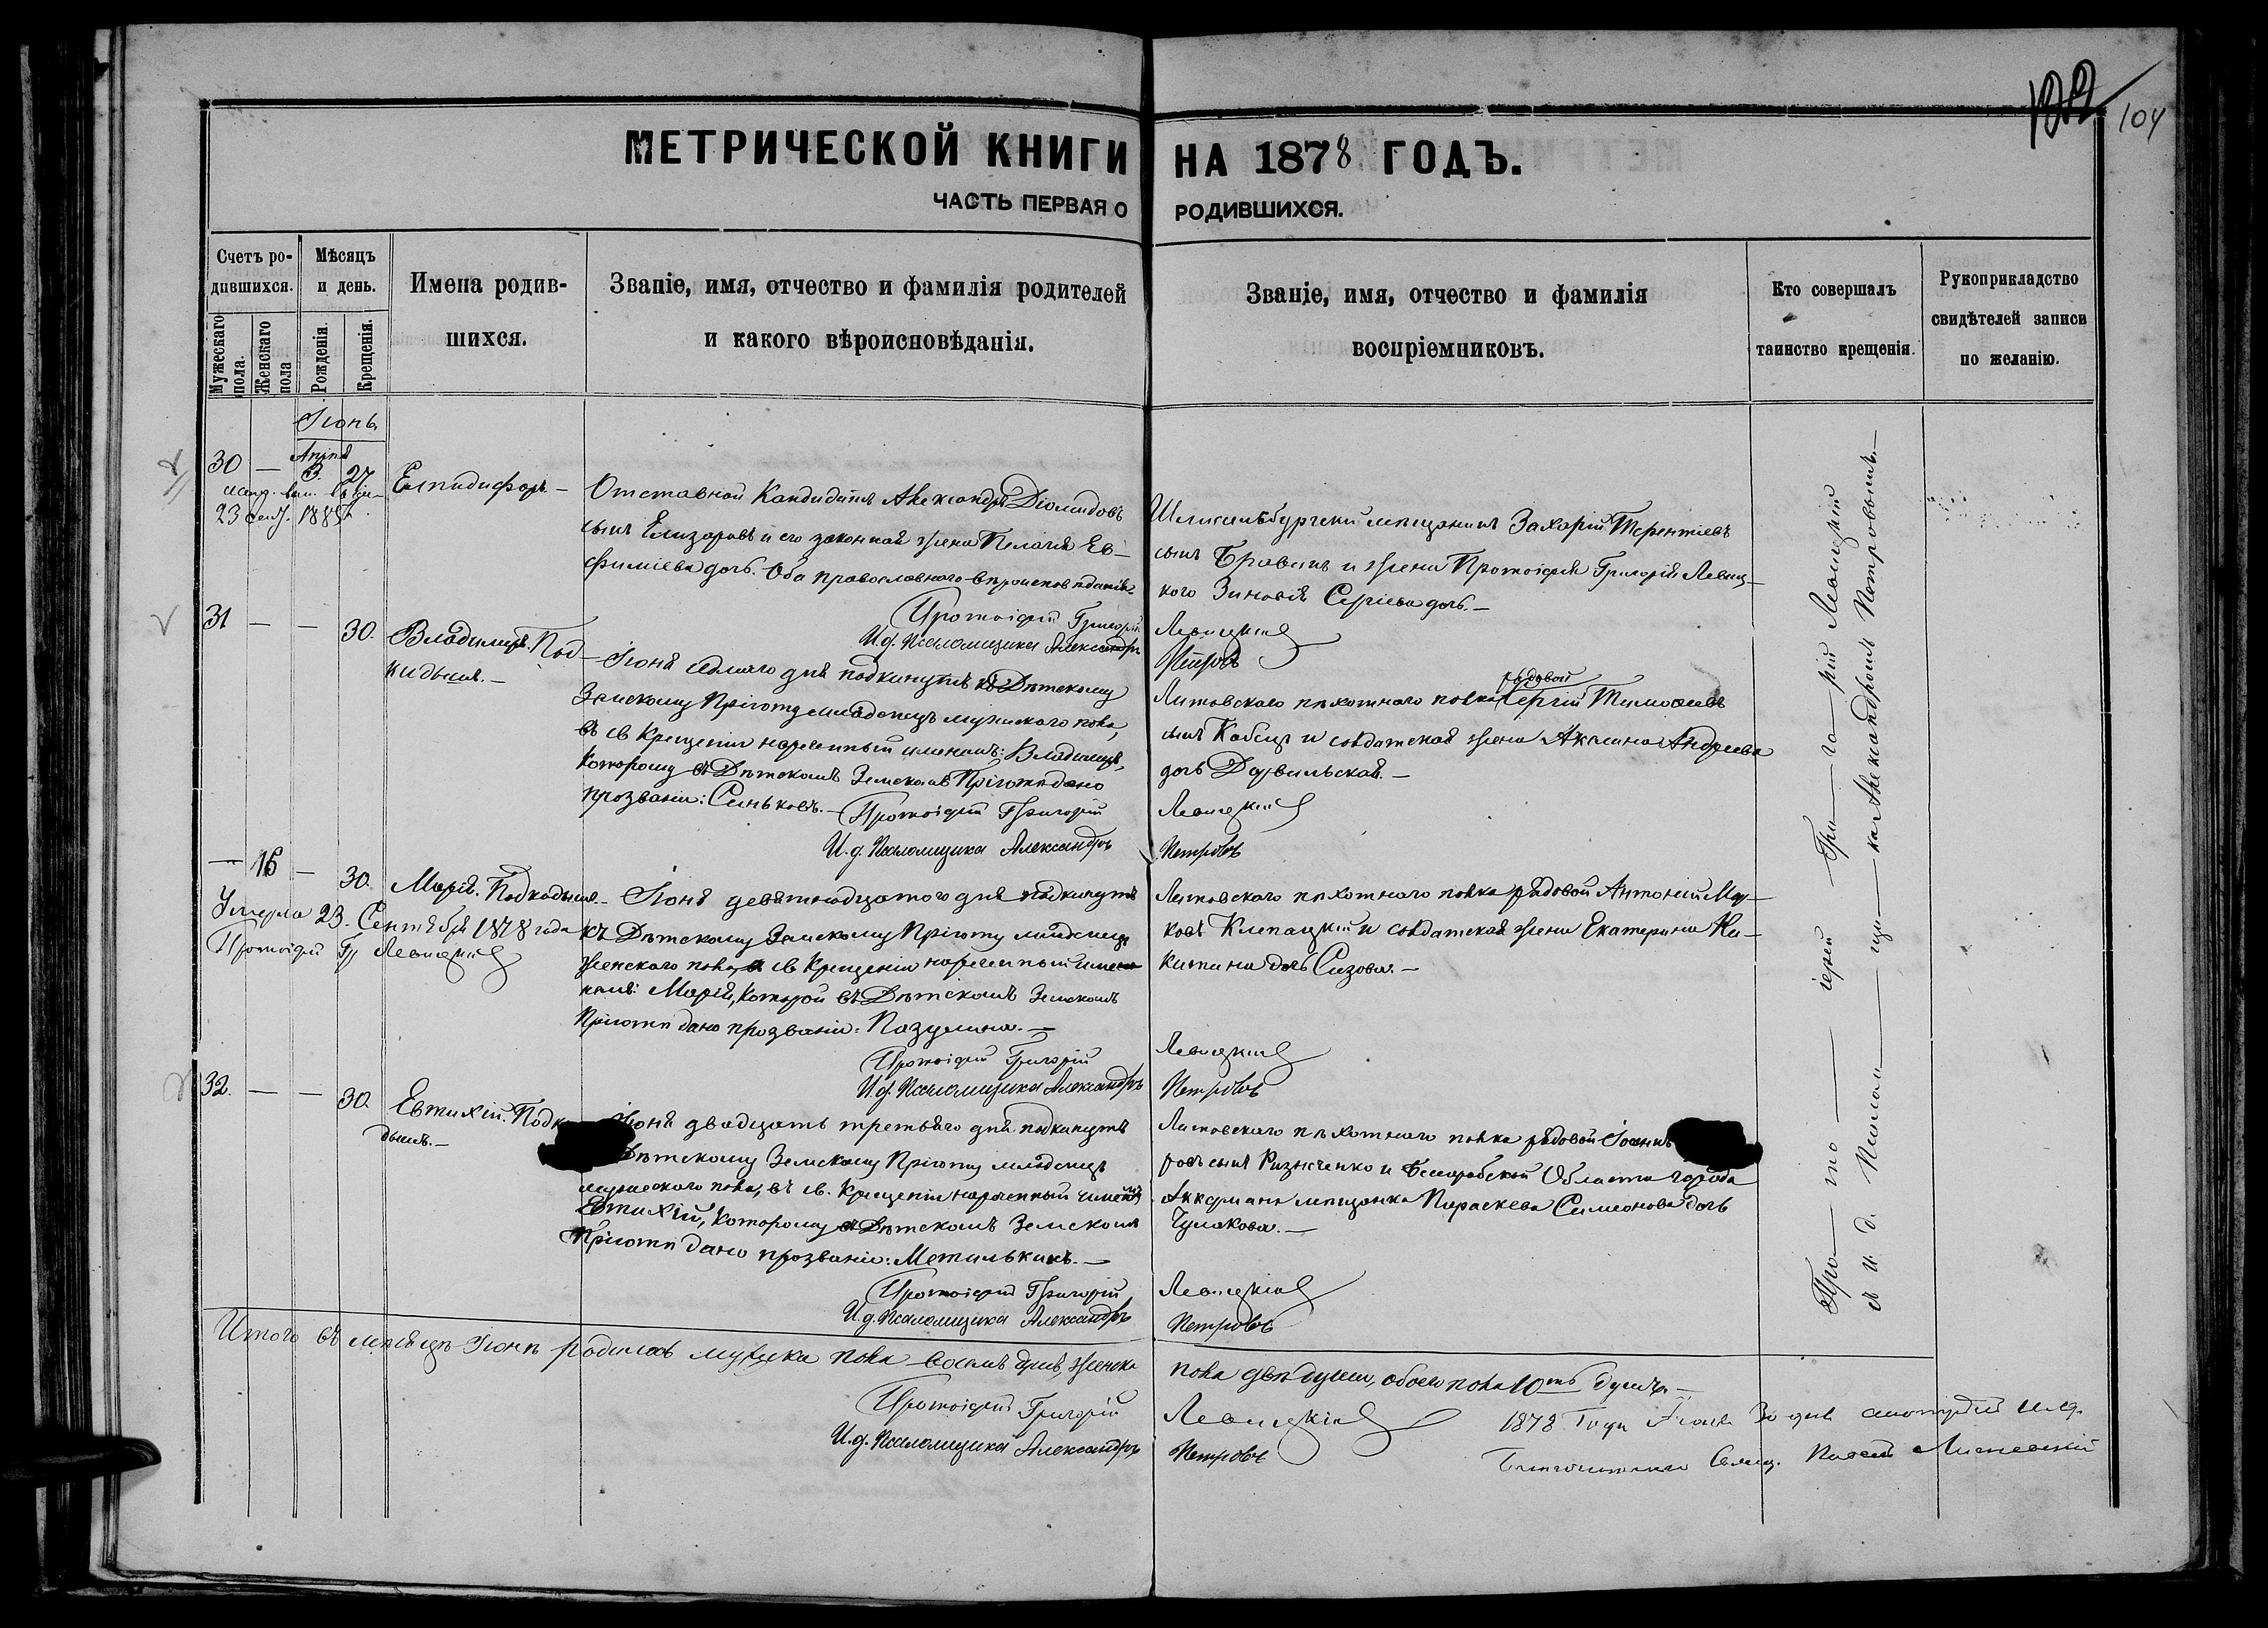 104
МЕТРИЧЕСКОЙ КНИГИ НА 1878 ГОДЪ.
ЧАСТЬ ПЕРВАЯ О РОДИВШИХСЯ.
Счетъ ро-
дившихся.
Мужескаго пола.
Женскаго пола
Мѣсяцъ
и день.
Рожденія.
Крещенія.
Имена родив-
шихся.
Званіе, имя, отчество и фамилія родителей
и какого вѣроисповѣданія.
Званіе, имя, отчество и фамилія
воспріемниковъ.
Кто совершалъ
таинство крещенія.
Рукоприкладство
свидѣтелей записи
по желанію.
Іюнь
30 — 3. 27
23 сент.
Елпидифоръ. —
Отставной Кандидатъ Александръ Діомидовъ
сынъ Елизаровъ и его законная жена Пелагія Ев-
фиміева дочь. Оба православнаго вѣроисповѣданія.
Протоіерей Григорій
И.д. Псаломщика Александръ
Шлиссельбургскій мѣщанинъ Захарій Терентіевъ
сынъ и жена Протоіерея Григорія Левиц-
кого Зиновія Сергіева дочь. —
Левицкій
Петровъ
31 — — 30.
Владиміръ. Под-
кидышъ. —
Іюня седмаго дня подкинутъ къ Дѣтскому
Земскому Пріюту младенецъ мужескаго пола,
въ св Крещеніи нареченный именемъ: Владиміръ,
которому въ Дѣтскомъ Земскомъ Пріютѣ дано
прозваніе: Синьковъ. — Протоіерей Григорій
И.д. Псаломщика Александръ
рядовой
Литовскаго пѣхотнаго полка Сергій Тимофеевъ
сынъ и солдатская жена Акилина Андреева
дочь —
Левицкій
Петровъ
— 16 — 30.
Марія. Подкидышъ. —
Умерла 23. Сентября 1878 года
Протоіерей Гр Левицкій
Іюня девятнадцатаго дня подкинутъ
къ Дѣтскому Земскому Пріюту младенецъ
женскаго пола, въ св Крещеніи нареченный имен-
немъ: Марія, которой въ Дѣтскомъ Земскомъ
Пріютѣ дано прозваніе: Пазулина. —
Протоіерей Григорій
И.д. Псаломщика Александръ
Литовскаго пѣхотнаго полка рядовой Антоній Мар-
ковъ Клепацкій и солдатская жена Екатерина Ни-
китина дочь Сизова. —
Левицкій
Петровъ
32. — — 30.
Евтихій. Подки
дышъ. —
Іюня двадцать третьяго дня подкинутъ
Дѣтскому Земскому Пріюту младенецъ
мужескаго пола, въ св. Крещеніи нареченный именемъ
Евтихій, которому въ Дѣтскомъ Земскомъ
Пріютѣ дано прозваніе: Метилькинъ. —
Протоіерей Григорій
И.д. Псаломщика Александръ
Литовскаго пѣхотнаго полка рядовой Іоаннъ
ровъ сынъ Ризниченко и Бессарабской Области города
Аккермана мѣщанка Параскева Симеонова дочь
Чумакова. —
Левицкій
Петровъ
Про — то — іерей Гри — го — рій Левицкій
съ и. д. Псалом — щи — ка Александромъ Петровымъ. —
Итого въ мѣсяцѣ Іюнѣ родилось мужска пола восемь душъ, женска
пола двѣ души, обоего пола 10ть душъ —
Протоіерей Григорій
И.д. Псаломщика Александръ
Левицкій
Петровъ
1878 Года Іюня 30 дня смотрѣлъ И.д.
Благочиннаго Свящ.